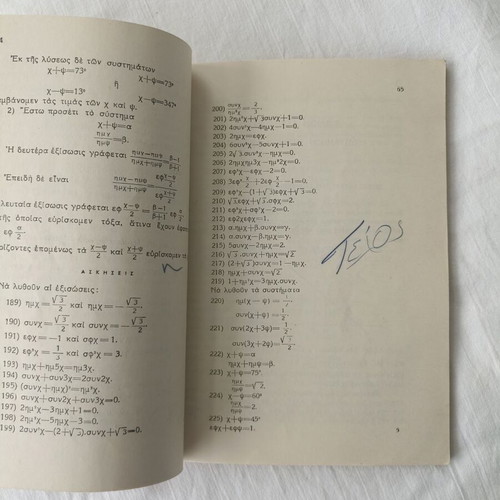 Ἐκ τῆς λύσεως δὲ τῶν συστημάτων
χ+ψ=73ᵍ χ+ψ=73ᵍ
ἤ
χ—ψ=13ᵍ χ—ψ=347ᵍ
μβάνομεν τὰς τιμὰς τῶν χ καὶ ψ.
2) Ἔστω προσέτι τὸ σύστημα
χ+ψ=α
ημχ/ημψ=β.
Ἡ δευτέρα ἐξίσωσις γράφεται ημχ—ημψ/ημχ+ημψ=β—1/β+1
Ἐπειδὴ δὲ εἶναι
λευταία ἐξίσωσις γράφεται εφ χ—ψ/2=β—1/β+1 εφ α/2
τῆς ὁποίας εὑρίσκομεν τόξα, ἅτινα ἔχουν
εφ α/2
ρίζοντες ἑπομένως τὰ χ—ψ/2 καὶ χ+ψ/2 εὑρίσκομεν τὰ
ΑΣΚΗΣΕΙΣ
Νὰ λυθοῦν αἱ ἐξισώσεις:
189) ημχ=√3/2 καὶ ημχ=—√3/2
190) συνχ=√3/2 καὶ συνχ=—√3/2
191) εφχ=—1 καὶ σφχ=1.
192) εφ²χ=1/3 καὶ σφ²χ=3.
193) ημχ+ημ5χ=ημ3χ.
194) συνχ+συν3χ=2συν2χ.
195) (συνχ+ημχ)²=ημ²χ.
196) συνχ+συν2χ+συν3χ=0.
197) 2ημ²χ—3ημχ+1=0.
198) 2ημ²χ—5ημχ—3=0.
199) 2συν²χ—(2+√3).συνχ+√3=0
45
200) συνχ/ημ²χ=2/3
201) 2ημ²χ+√3συνχ+1=0.
202) 4συν²χ—4ημχ—1=0.
203) 2ημχ=εφχ.
204) 6συν²χ—5συνχ+1=0.
205) 2√3.συν²χ=ημχ=0.
206) 2ημχημ3χ—ημ²2χ=0.
207) εφ²χ—εφχ—2=0.
208) 3εφ²χ/2+2εφχ/2—1=0.
209) εφ²χ—(1+√3)εφχ+√3=0
210) √3εφχ+√3.σφχ=2.
211) εφ²χ+σφ²χ—2=0.
212) εφ2χεφχ=1.
213) α.ημχ+β.συνχ=γ.
214) α.συνχ—β.ημχ=γ.
215) 5συνχ—2ημχ=2.
216) √3.συνχ+ημχ=√2
217) (2+√3)συνχ=1—ημχ.
218) ημχ+συνχ=√2
219) 1+ημ²χ=3ημχ.συνχ.
Νὰ λυθοῦν τὰ συστήματα
220) ημ(χ—ψ)=1/2
συν(χ+ψ)=1/2
221) συν(2χ+3ψ)=1/2
συν(3χ+2ψ)=√3/2
222) χ+ψ=α
ημχ+ημψ=β.
223) χ+ψ=75°
ημχ/ημψ=√2.
224) χ—ψ=60°
ημχ/ημψ=2.
225) χ+ψ=45°
εφχ+εφψ=1.